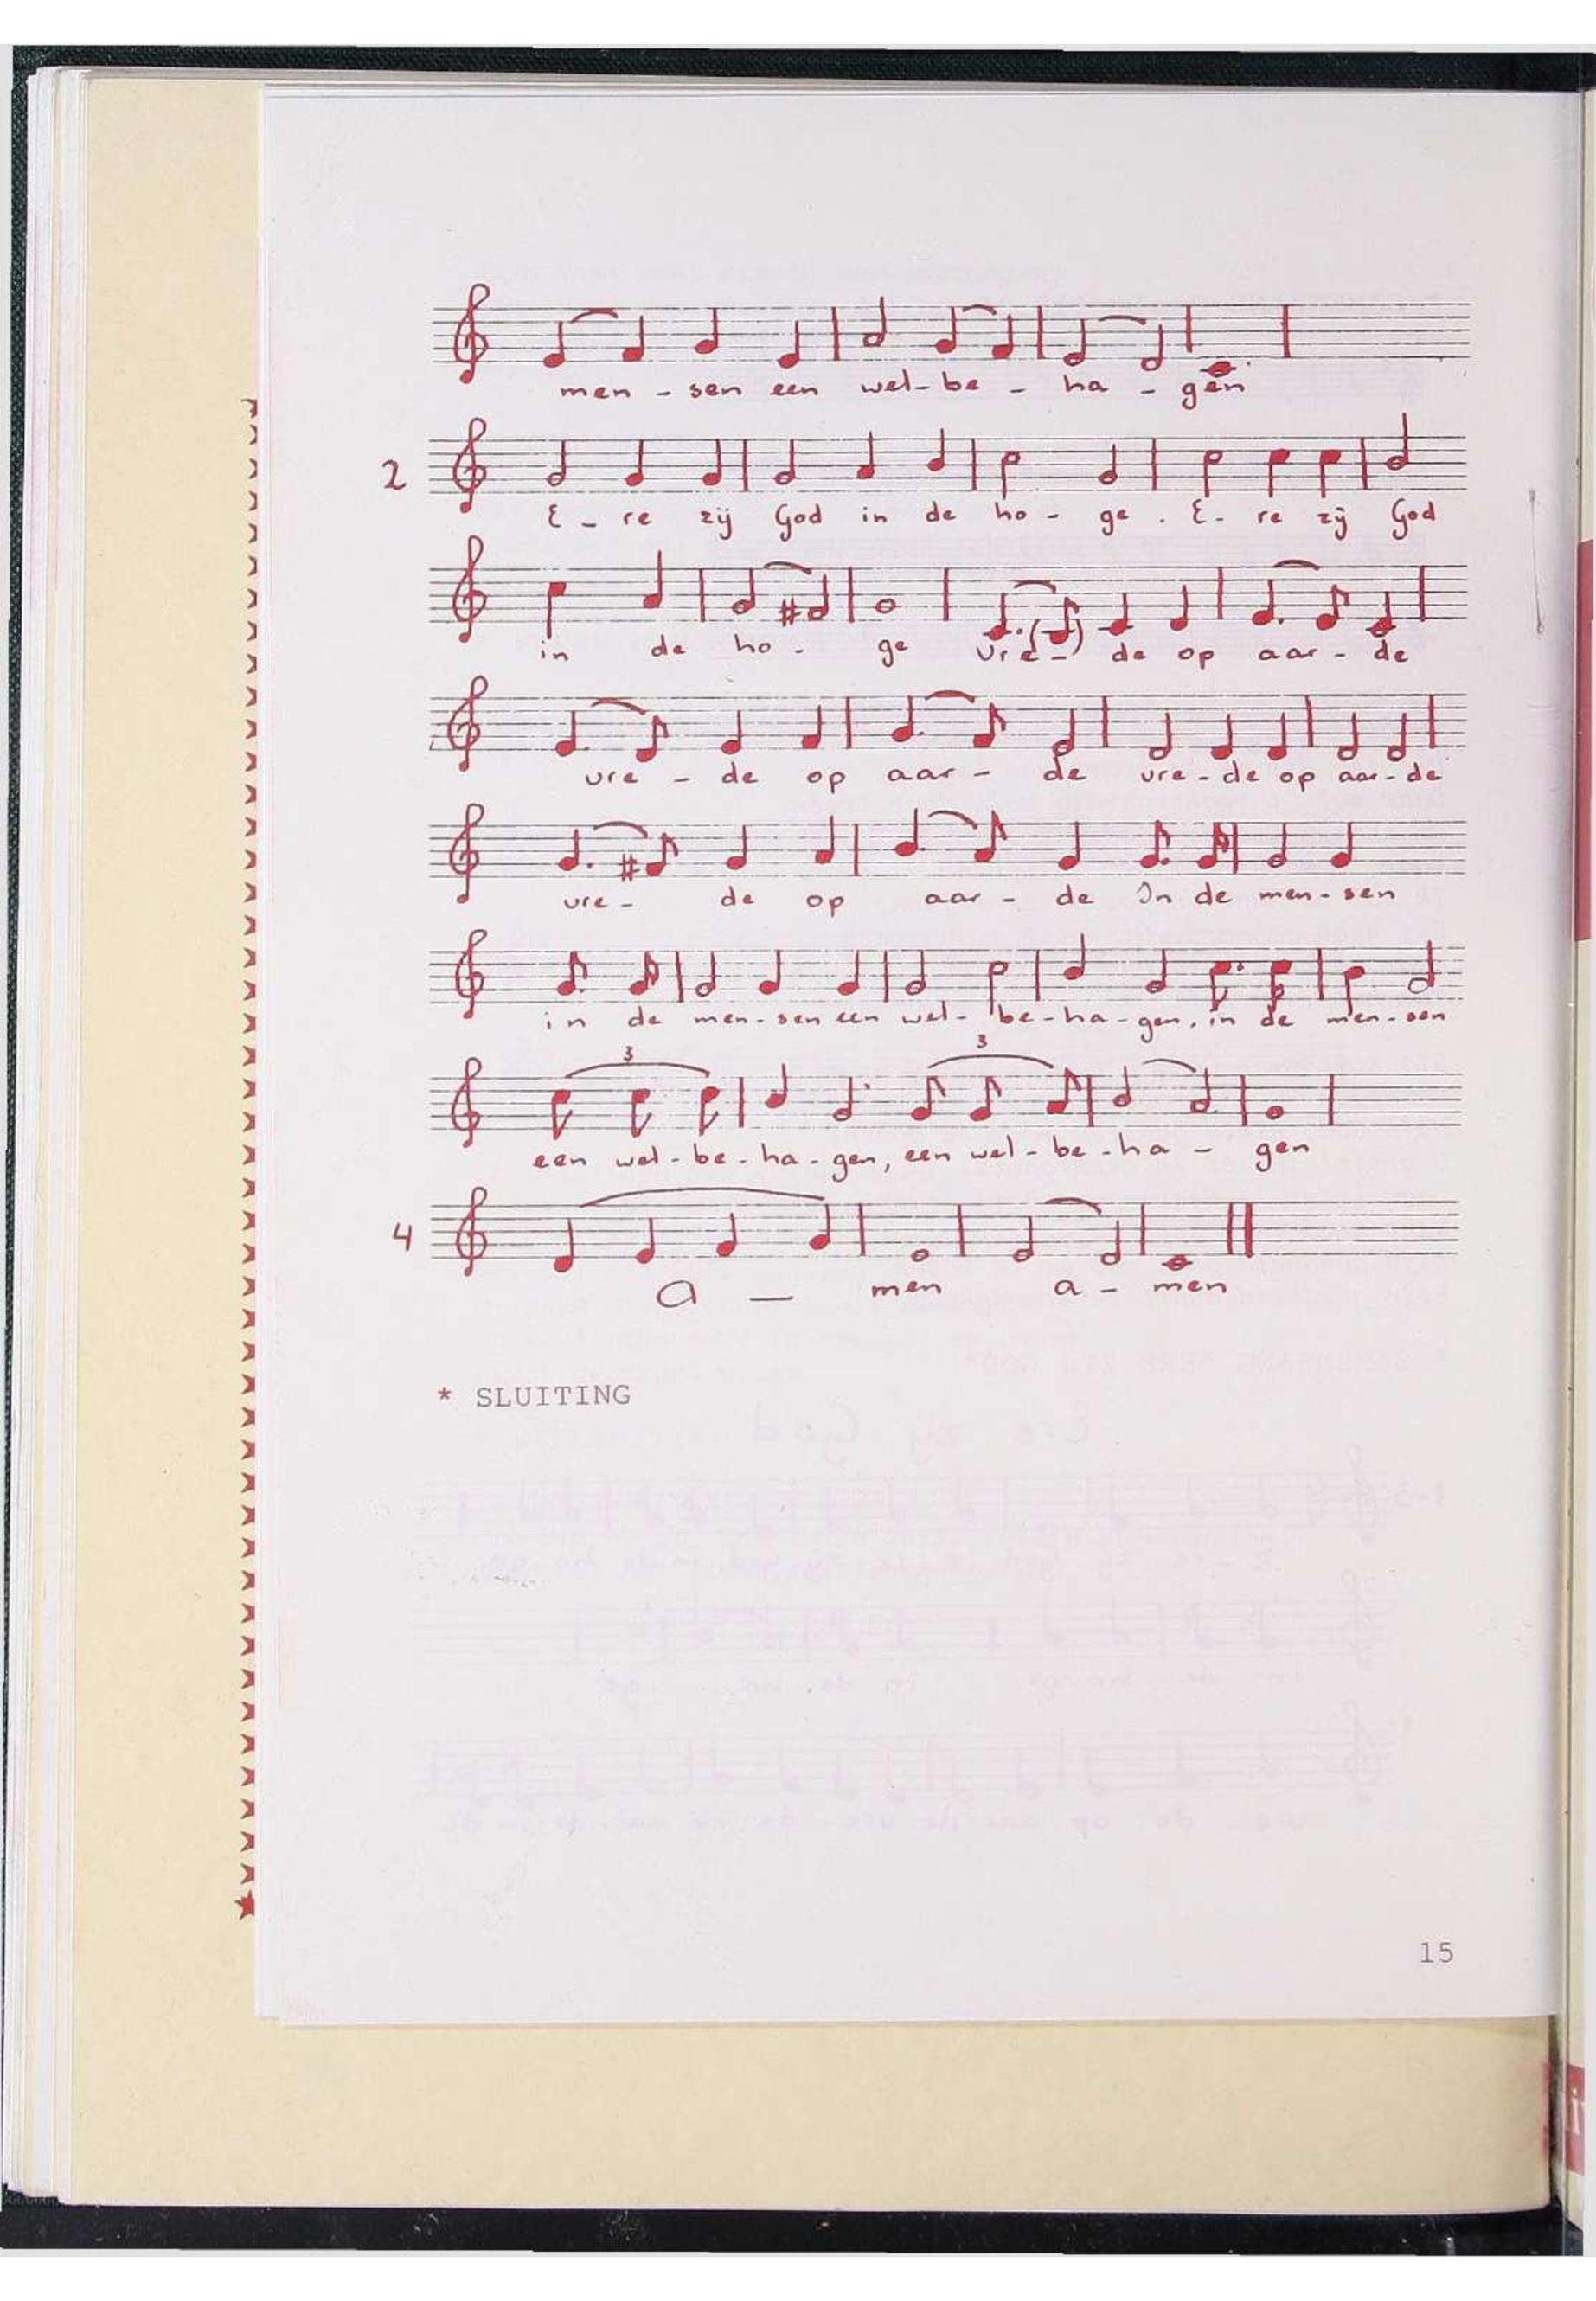 men - sen een wel - be - ha - gen
2
E - re zij God in de ho - ge . E - re zij God
in de ho - ge vre - de op aar - de
vre - de op aar - de vre - de op aar - de
vre - de op aar - de In de men - sen
in de men - sen een wel - be - ha - gen, in de men - sen
3 3
een wel - be - ha - gen, een wel - be - ha - gen
4
a — men a - men
* SLUITING
15